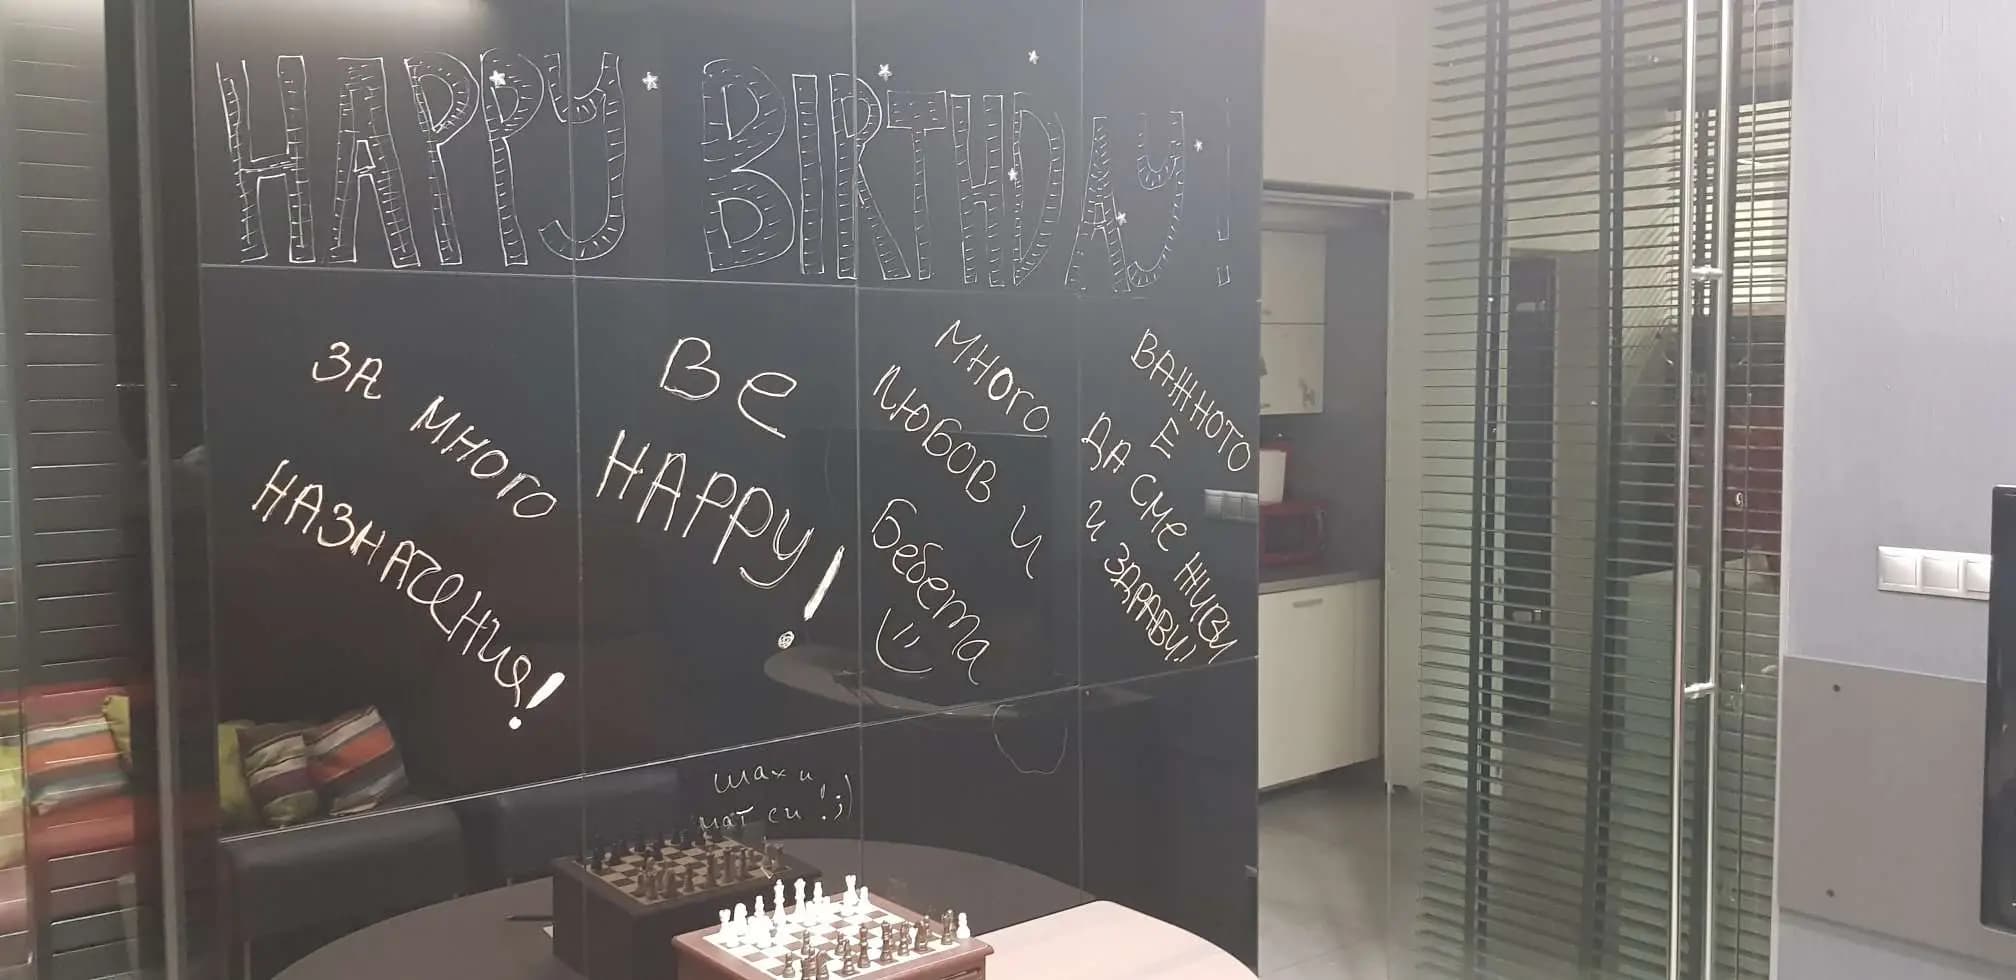 HAPPY BIRTHDAY!
ЗА МНОГО
НАЗНАЧЕНИЯ!
Be
HAPPY!
МНОГО
ЛЮБОВ И
Бебета
ВАЖНОТО
Е
ДА СМЕ ЖИВИ
И ЗДРАВИ!!
шах и
мат си! ;)